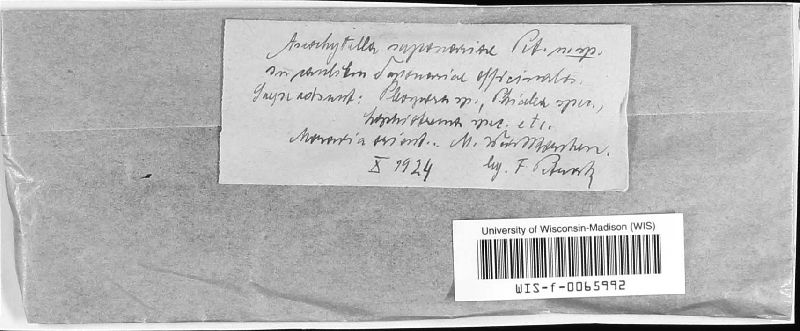 Ascochytella saponariae Pet. n. sp.
in caulibus Saponariae officinalis.
adsunt: Pleospora sp., Phialea spec.,
Lophiostoma spec. etc.
Moravia orient.: M. Weisskirchen.
X 1924 leg. F. Petrak
University of Wisconsin-Madison (WIS)
WIS-f-0065992